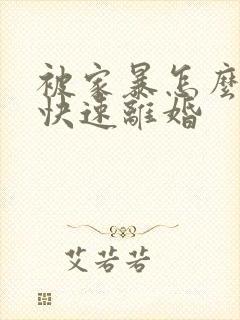 被家暴怎麼
快速離婚
艾若若